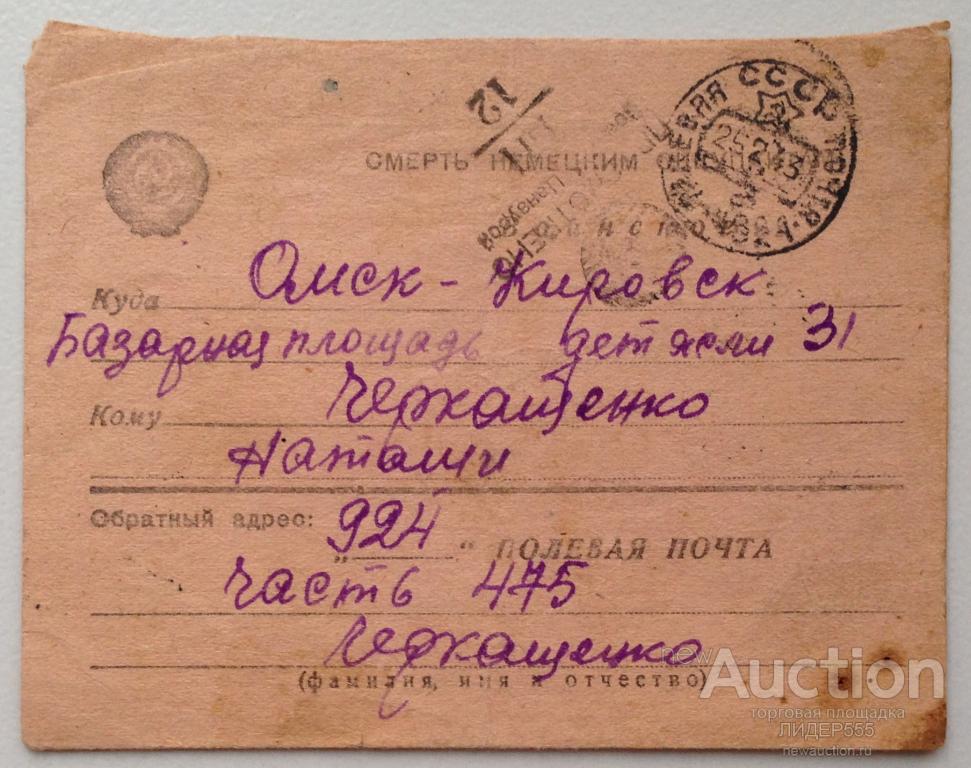 12
СССР ПОЛЕВАЯ ПОЧТА
СМЕРТЬ НЕМЕЦКИМ
Куда Омск - Кировск
Базарная площадь детясли 31
Кому Черкащенко
Наташи
Обратный адрес: 924
„ “ ПОЛЕВАЯ ПОЧТА
Часть 475
Черкащенко
(фамилия, имя и отчество)
newAuction
торговая площадка
ЛИДЕР555
newauction.ru